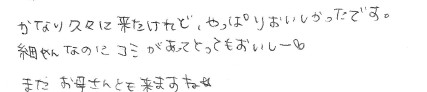 かなり久々に来たけれど、やっぱりおいしかったです。
細めんなのにコシがあってとってもおいしー
またお母さんとも来ますね